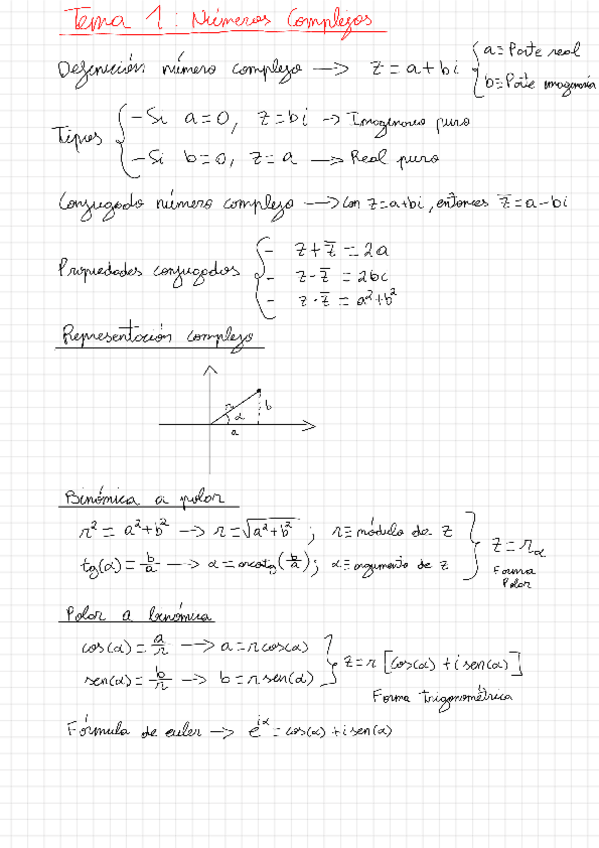 Tema 1: Números Complejos
Definición número complejo → z = a + bi { a ≡ Parte real
b ≡ Parte imaginaria
Tipos { - Si a = 0, z = bi → Imaginario puro
- Si b = 0, z = a → Real puro
Conjugado número complejo → Con z = a+bi, entonces z̅ = a - bi
Propiedades conjugados { - z + z̅ = 2a
- z - z̅ = 2bi
- z · z̅ = a² + b²
Representación complejo
r
b
α
a
Binómica a polar
r² = a² + b² → r = √(a² + b²) ; r ≡ módulo de z
tg(α) = b/a → α = arcotg(b/a) ; α ≡ argumento de z } z = r_α
Forma
Polar
Polar a binómica
cos(α) = a/r → a = r cos(α)
sen(α) = b/r → b = r sen(α) } z = r [cos(α) + i sen(α)]
Forma trigonométrica
Fórmula de euler → e^{iα} = cos(α) + i sen(α)